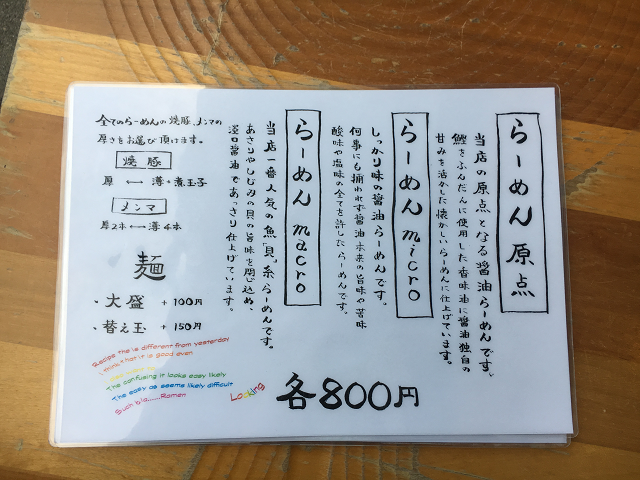 らーめん 原点
当店の原点となる醤油らーめんです。
鰹をふんだんに使用した香味油に醤油独自の
甘みを活かした懐かしいらーめんに仕上げています。
らーめん micro
しっかり味の醤油らーめんです。
何事にも捕われず醤油本来の旨味や苦味
酸味や塩味の全てを許したらーめんです。
らーめん macro
当店一番人気の魚「貝」系らーめんです。
あさりやしじみの貝の旨味を閉じ込め、
淡口醤油であっさり仕上げています。
各800円
全てのらーめんの焼豚、メンマの
厚さをお選び頂けます。
焼豚
厚 ←→ 薄+煮玉子
メンマ
厚2本 ←→ 薄4本
麺
・大盛 +100円
・替え玉 +150円
Recipe the is different from yesterday
I think that it is good even
The confusing it looks easy likely
The easy as seems likely difficult
Such bla......Ramen
Looking